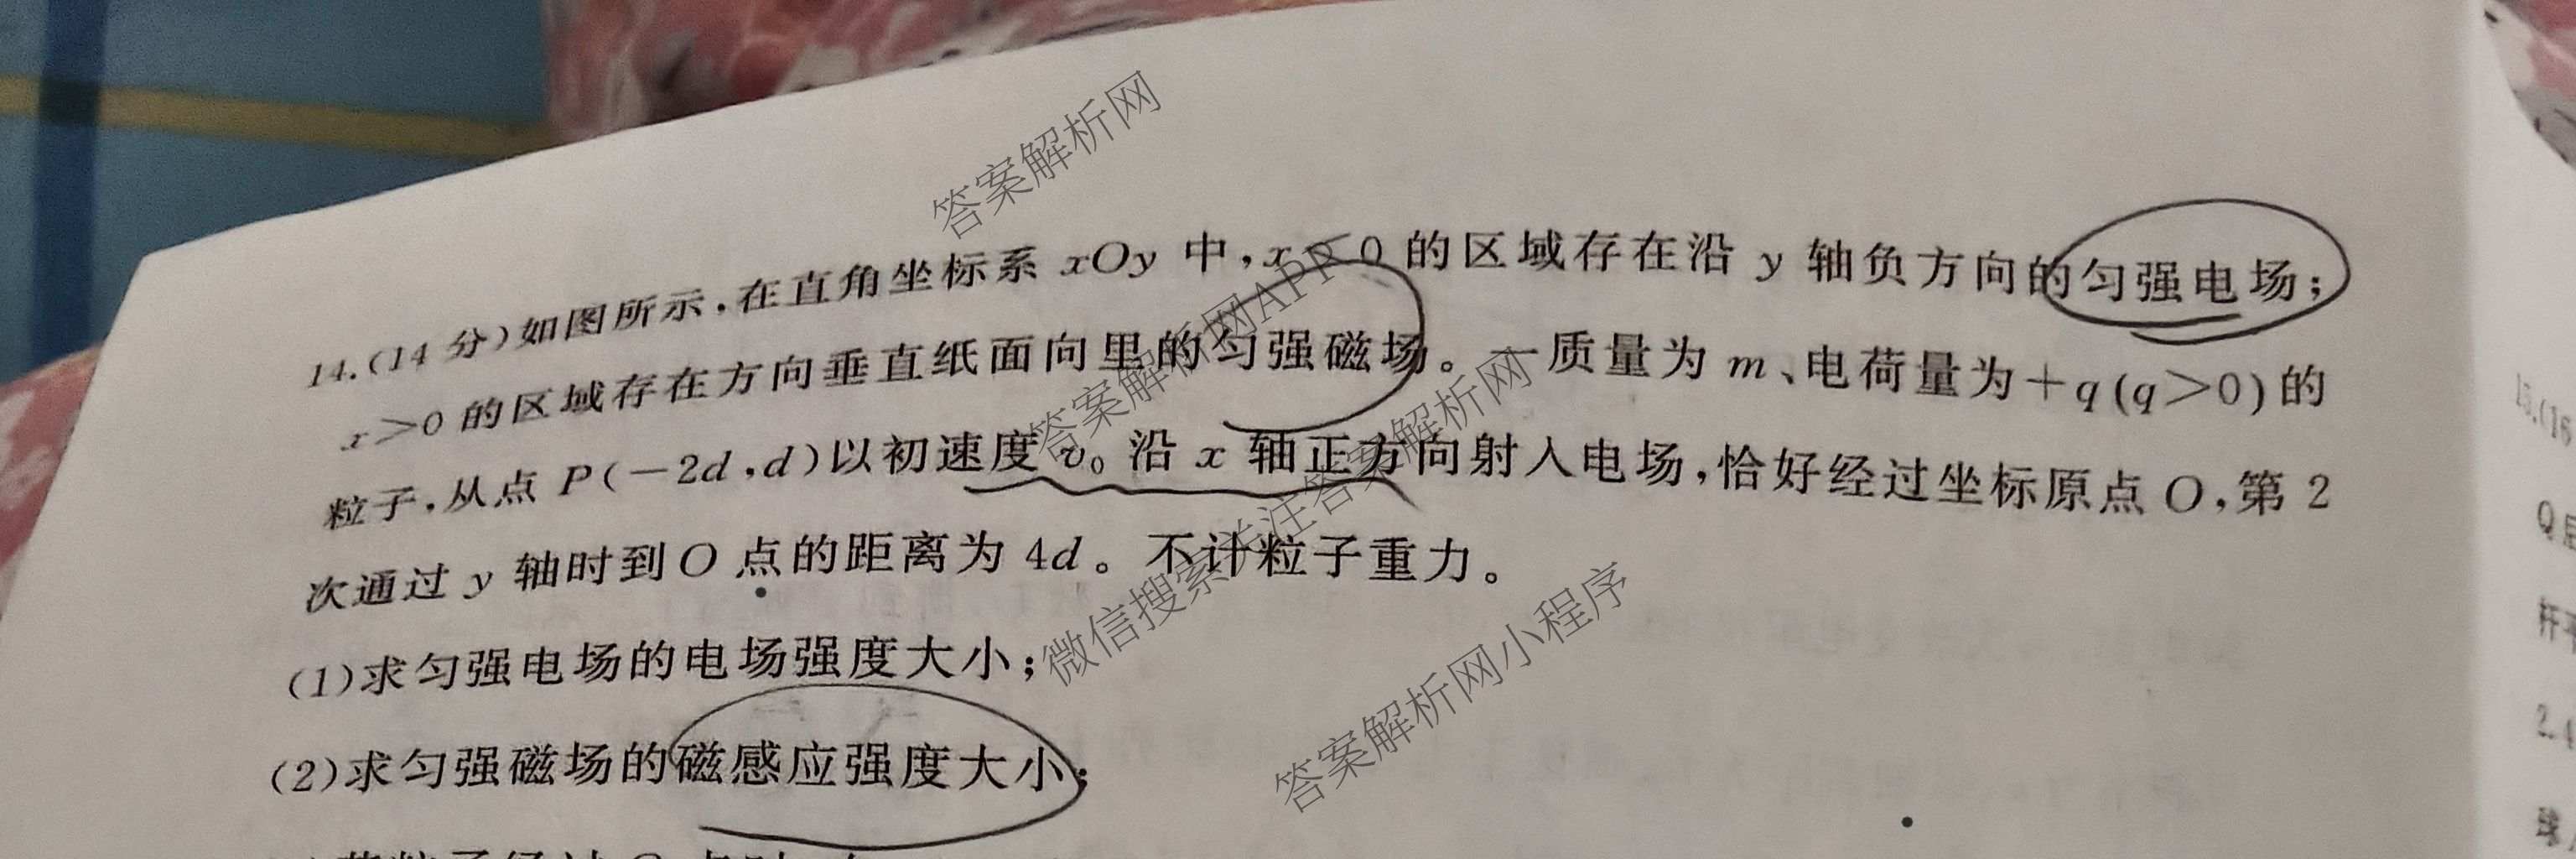 14.(14分)如图所示,在直角坐标系 xOy 中,x<0 的区域存在沿 y 轴负方向的匀强电场;
x>0 的区域存在方向垂直纸面向里的匀强磁场。一质量为 m、电荷量为+q(q>0)的
粒子,从点 P(-2d,d)以初速度 v₀ 沿 x 轴正方向射入电场,恰好经过坐标原点 O,第 2
次通过 y 轴时到 O 点的距离为 4d。不计粒子重力。
(1)求匀强电场的电场强度大小;
(2)求匀强磁场的磁感应强度大小;
答案解析网
答案解析网APP
答案解析网
微信搜索关注答案解析网
答案解析网小程序
15.(16
2.
球